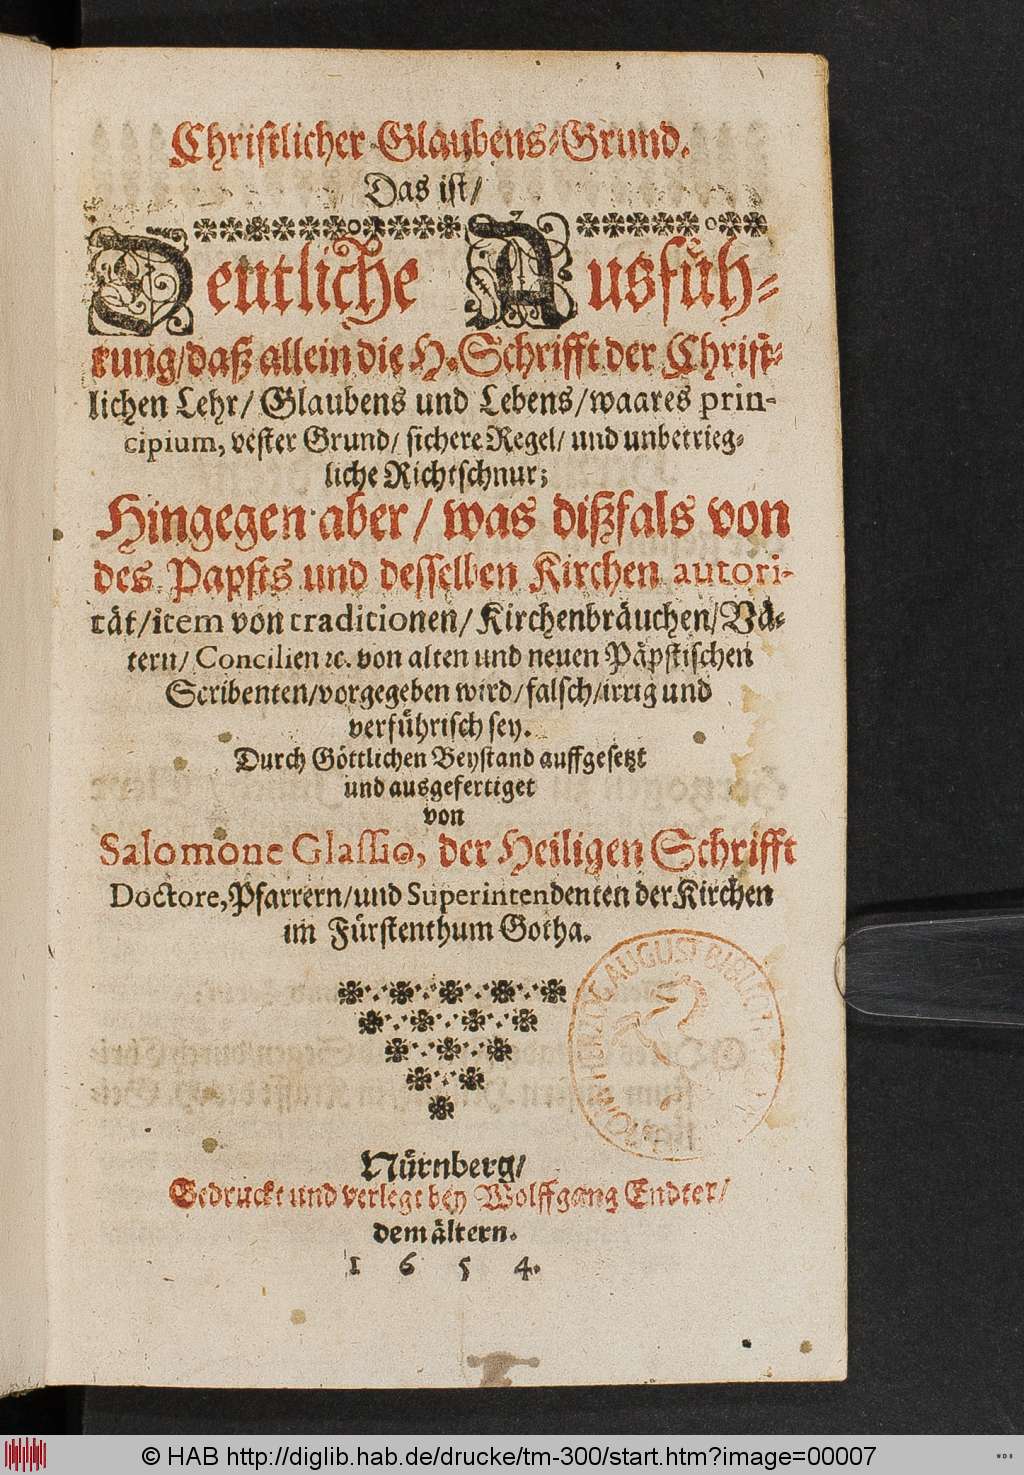 Christlicher Glaubens-Grund.
Das ist/
Deutliche Ausfüh-
rung/daß allein die H. Schrifft der Christ-
lichen Lehr/ Glaubens und Lebens/waares prin-
cipium, vester Grund/ sichere Regel/ und unbetrieg-
liche Richtschnur;
Hingegen aber/ was dißfals von
des Papsts und desselben Kirchen autori-
tät/item von traditionen/ Kirchenbräuchen/ Vä-
tern/ Concilien ꝛc. von alten und neuen Päpstischen
Scribenten/vorgegeben wird/ falsch/irrig und
verführisch sey.
Durch Göttlichen Beystand auffgesetzt
und ausgefertiget
von
Salomone Glassio, der Heiligen Schrifft
Doctore, Pfarrern/und Superintendenten der Kirchen
im Fürstenthum Gotha.
HERZOG AUGUST BIBLIOT
Nürnberg/
Gedruckt und verlegt bey Wolffgang Endter/
dem ältern.
1654.
© HAB http://diglib.hab.de/drucke/tm-300/start.htm?image=00007